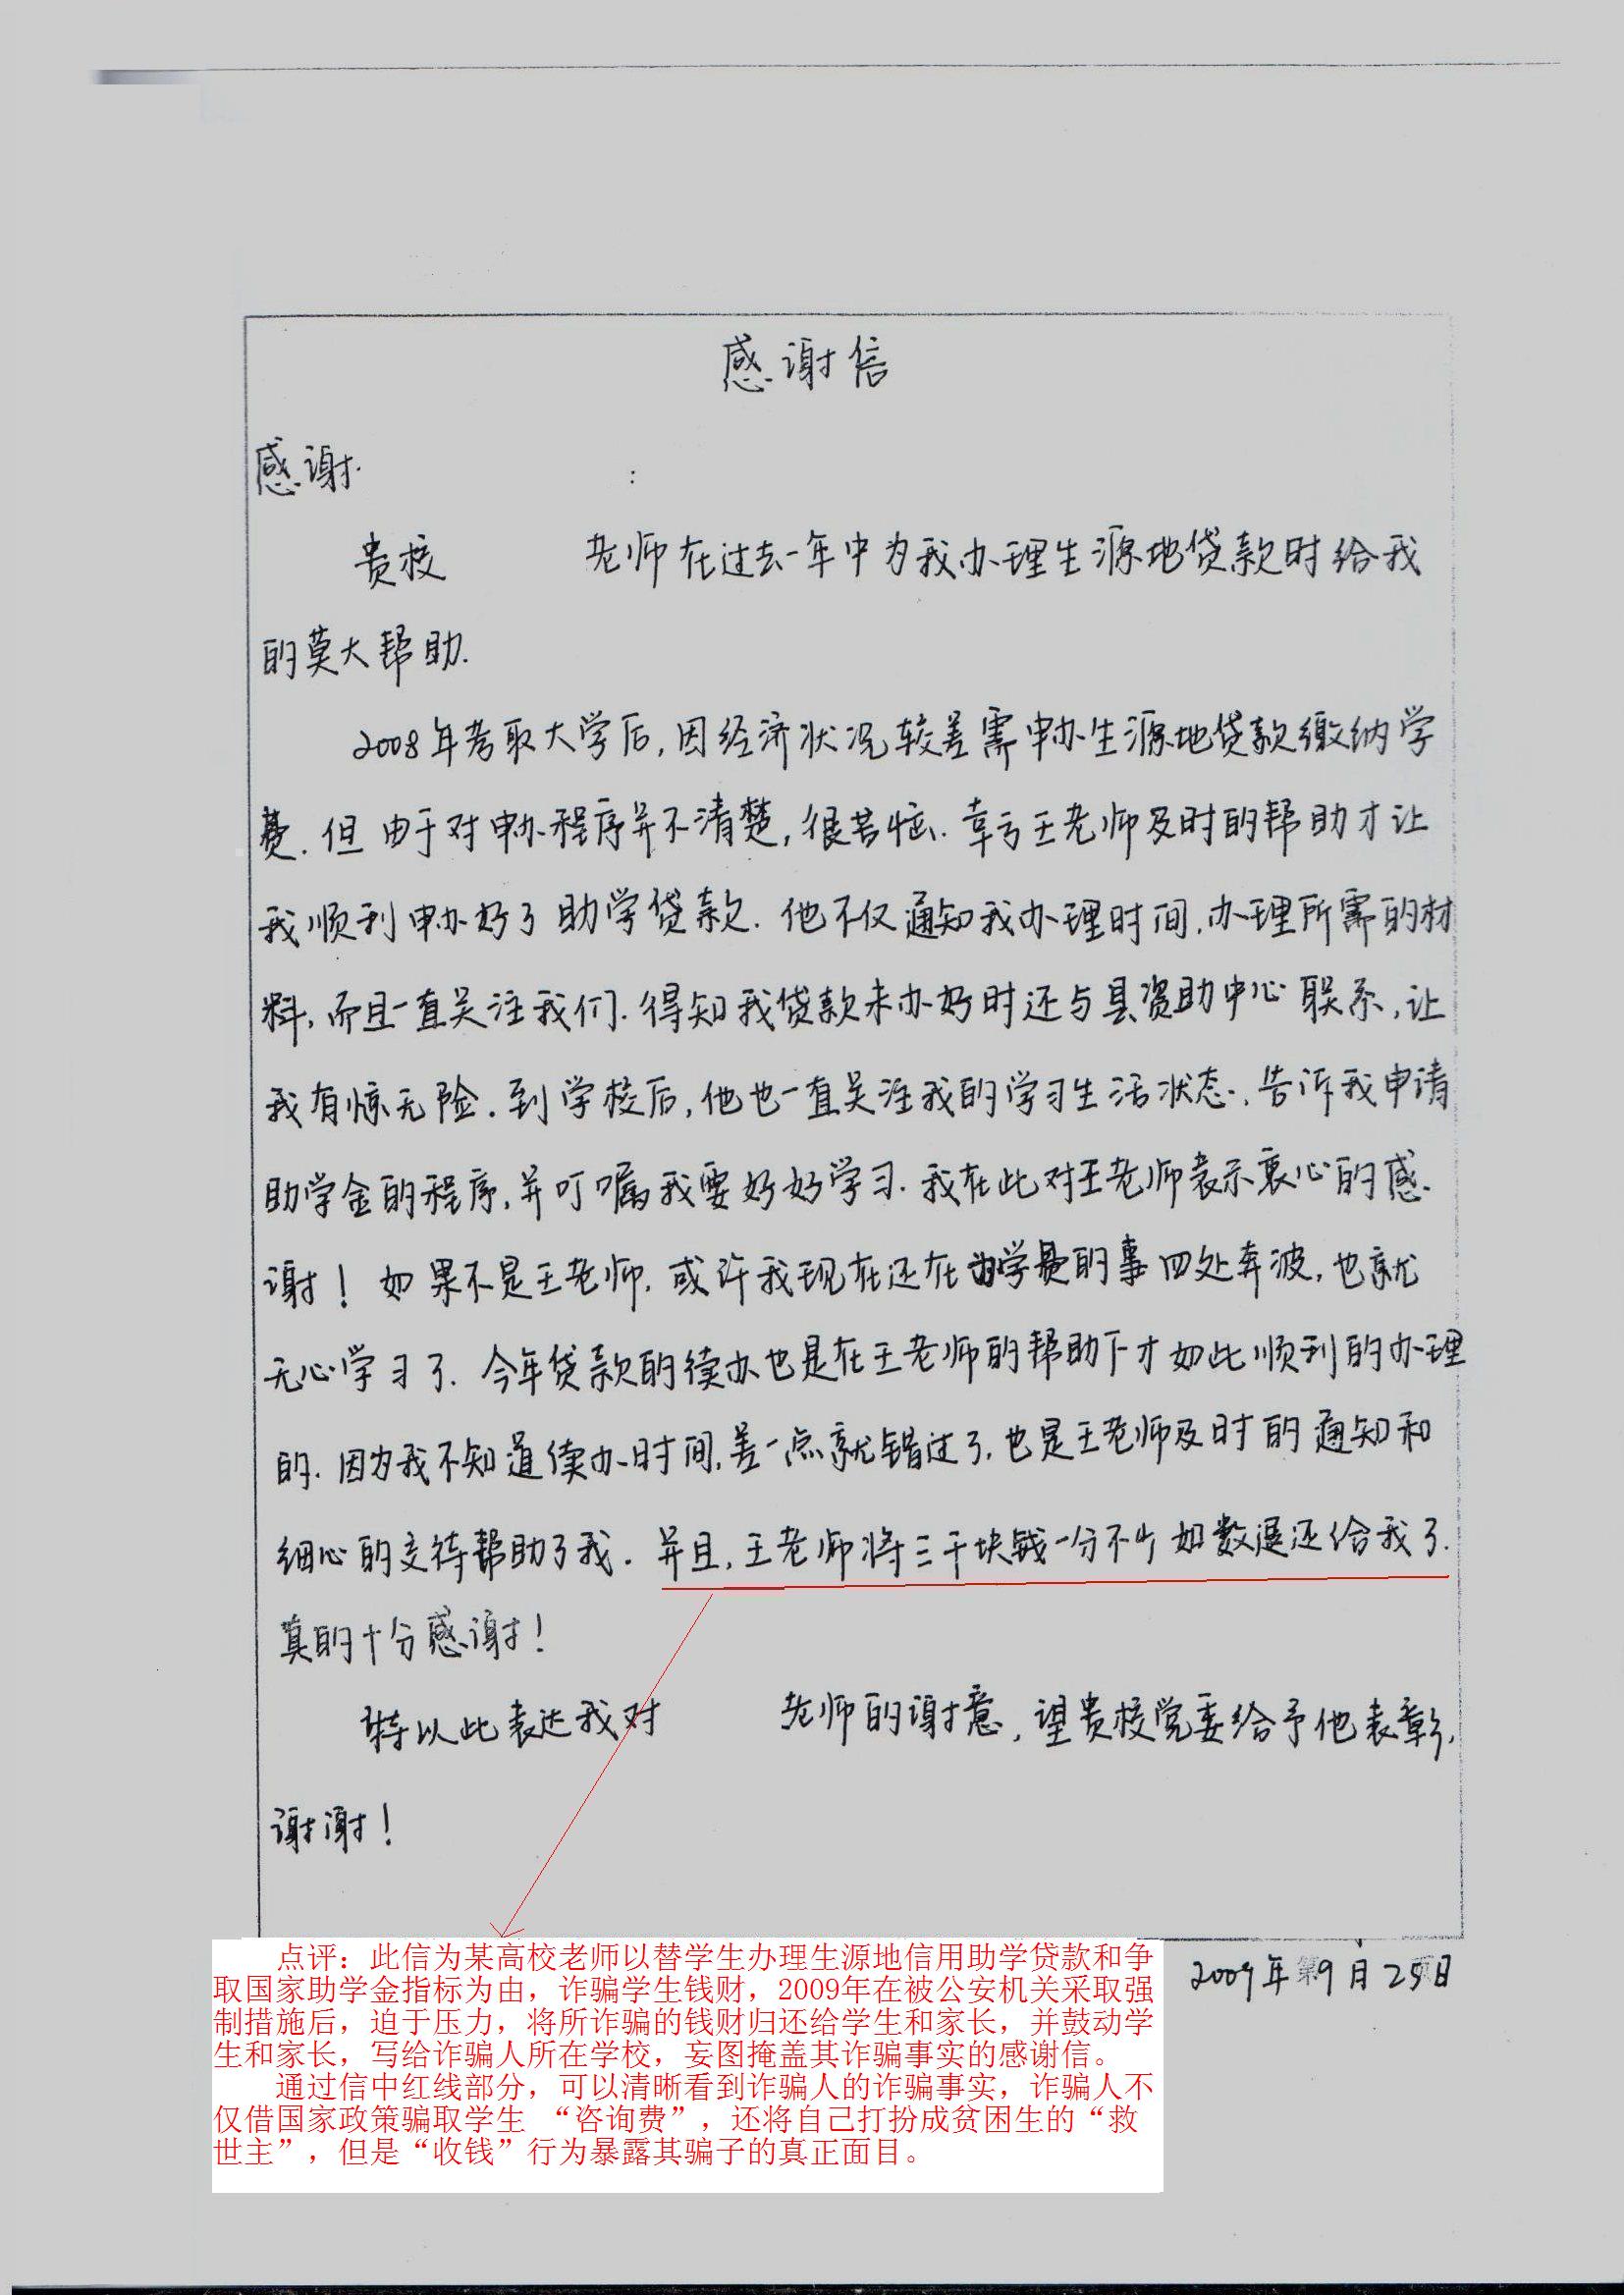 感谢信
感谢 :
贵校 老师在过去一年中为我办理生源地贷款时给我
的莫大帮助.
2008年考取大学后,因经济状况较差需申办生源地贷款缴纳学
费.但由于对申办程序并不清楚,很苦恼.幸亏王老师及时的帮助才让
我顺利申办好了助学贷款.他不仅通知我办理时间,办理所需的材
料,而且一直关注我们.得知我贷款未办好时还与县资助中心联系,让
我有惊无险.到学校后,他也一直关注我的学习生活状态,告诉我申请
助学金的程序,并叮嘱我要好好学习.我在此对王老师表示衷心的感
谢!如果不是王老师,或许我现在还在为学费的事四处奔波,也就
无心学习了.今年贷款的续办也是在王老师的帮助下才如此顺利的办理
的.因为我不知道续办时间,差一点就错过了,也是王老师及时的通知和
细心的交待帮助了我.并且,王老师将三千块钱一分不少如数退还给我了.
真的十分感谢!
特以此表达我对 老师的谢意,望贵校党委给予他表彰,
谢谢!
2009年9月25日
点评：此信为某高校老师以替学生办理生源地信用助学贷款和争
取国家助学金指标为由，诈骗学生钱财，2009年在被公安机关采取强
制措施后，迫于压力，将所诈骗的钱财归还给学生和家长，并鼓动学
生和家长，写给诈骗人所在学校，妄图掩盖其诈骗事实的感谢信。
通过信中红线部分，可以清晰看到诈骗人的诈骗事实，诈骗人不
仅借国家政策骗取学生 “咨询费”，还将自己打扮成贫困生的“救
世主”，但是“收钱”行为暴露其骗子的真正面目。